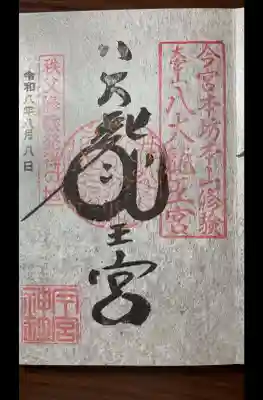 今宮本坊本山修験
八大龍王宮
八大龍王宮
秩父修験発祥の地
令和八年八月八日
今宮神社